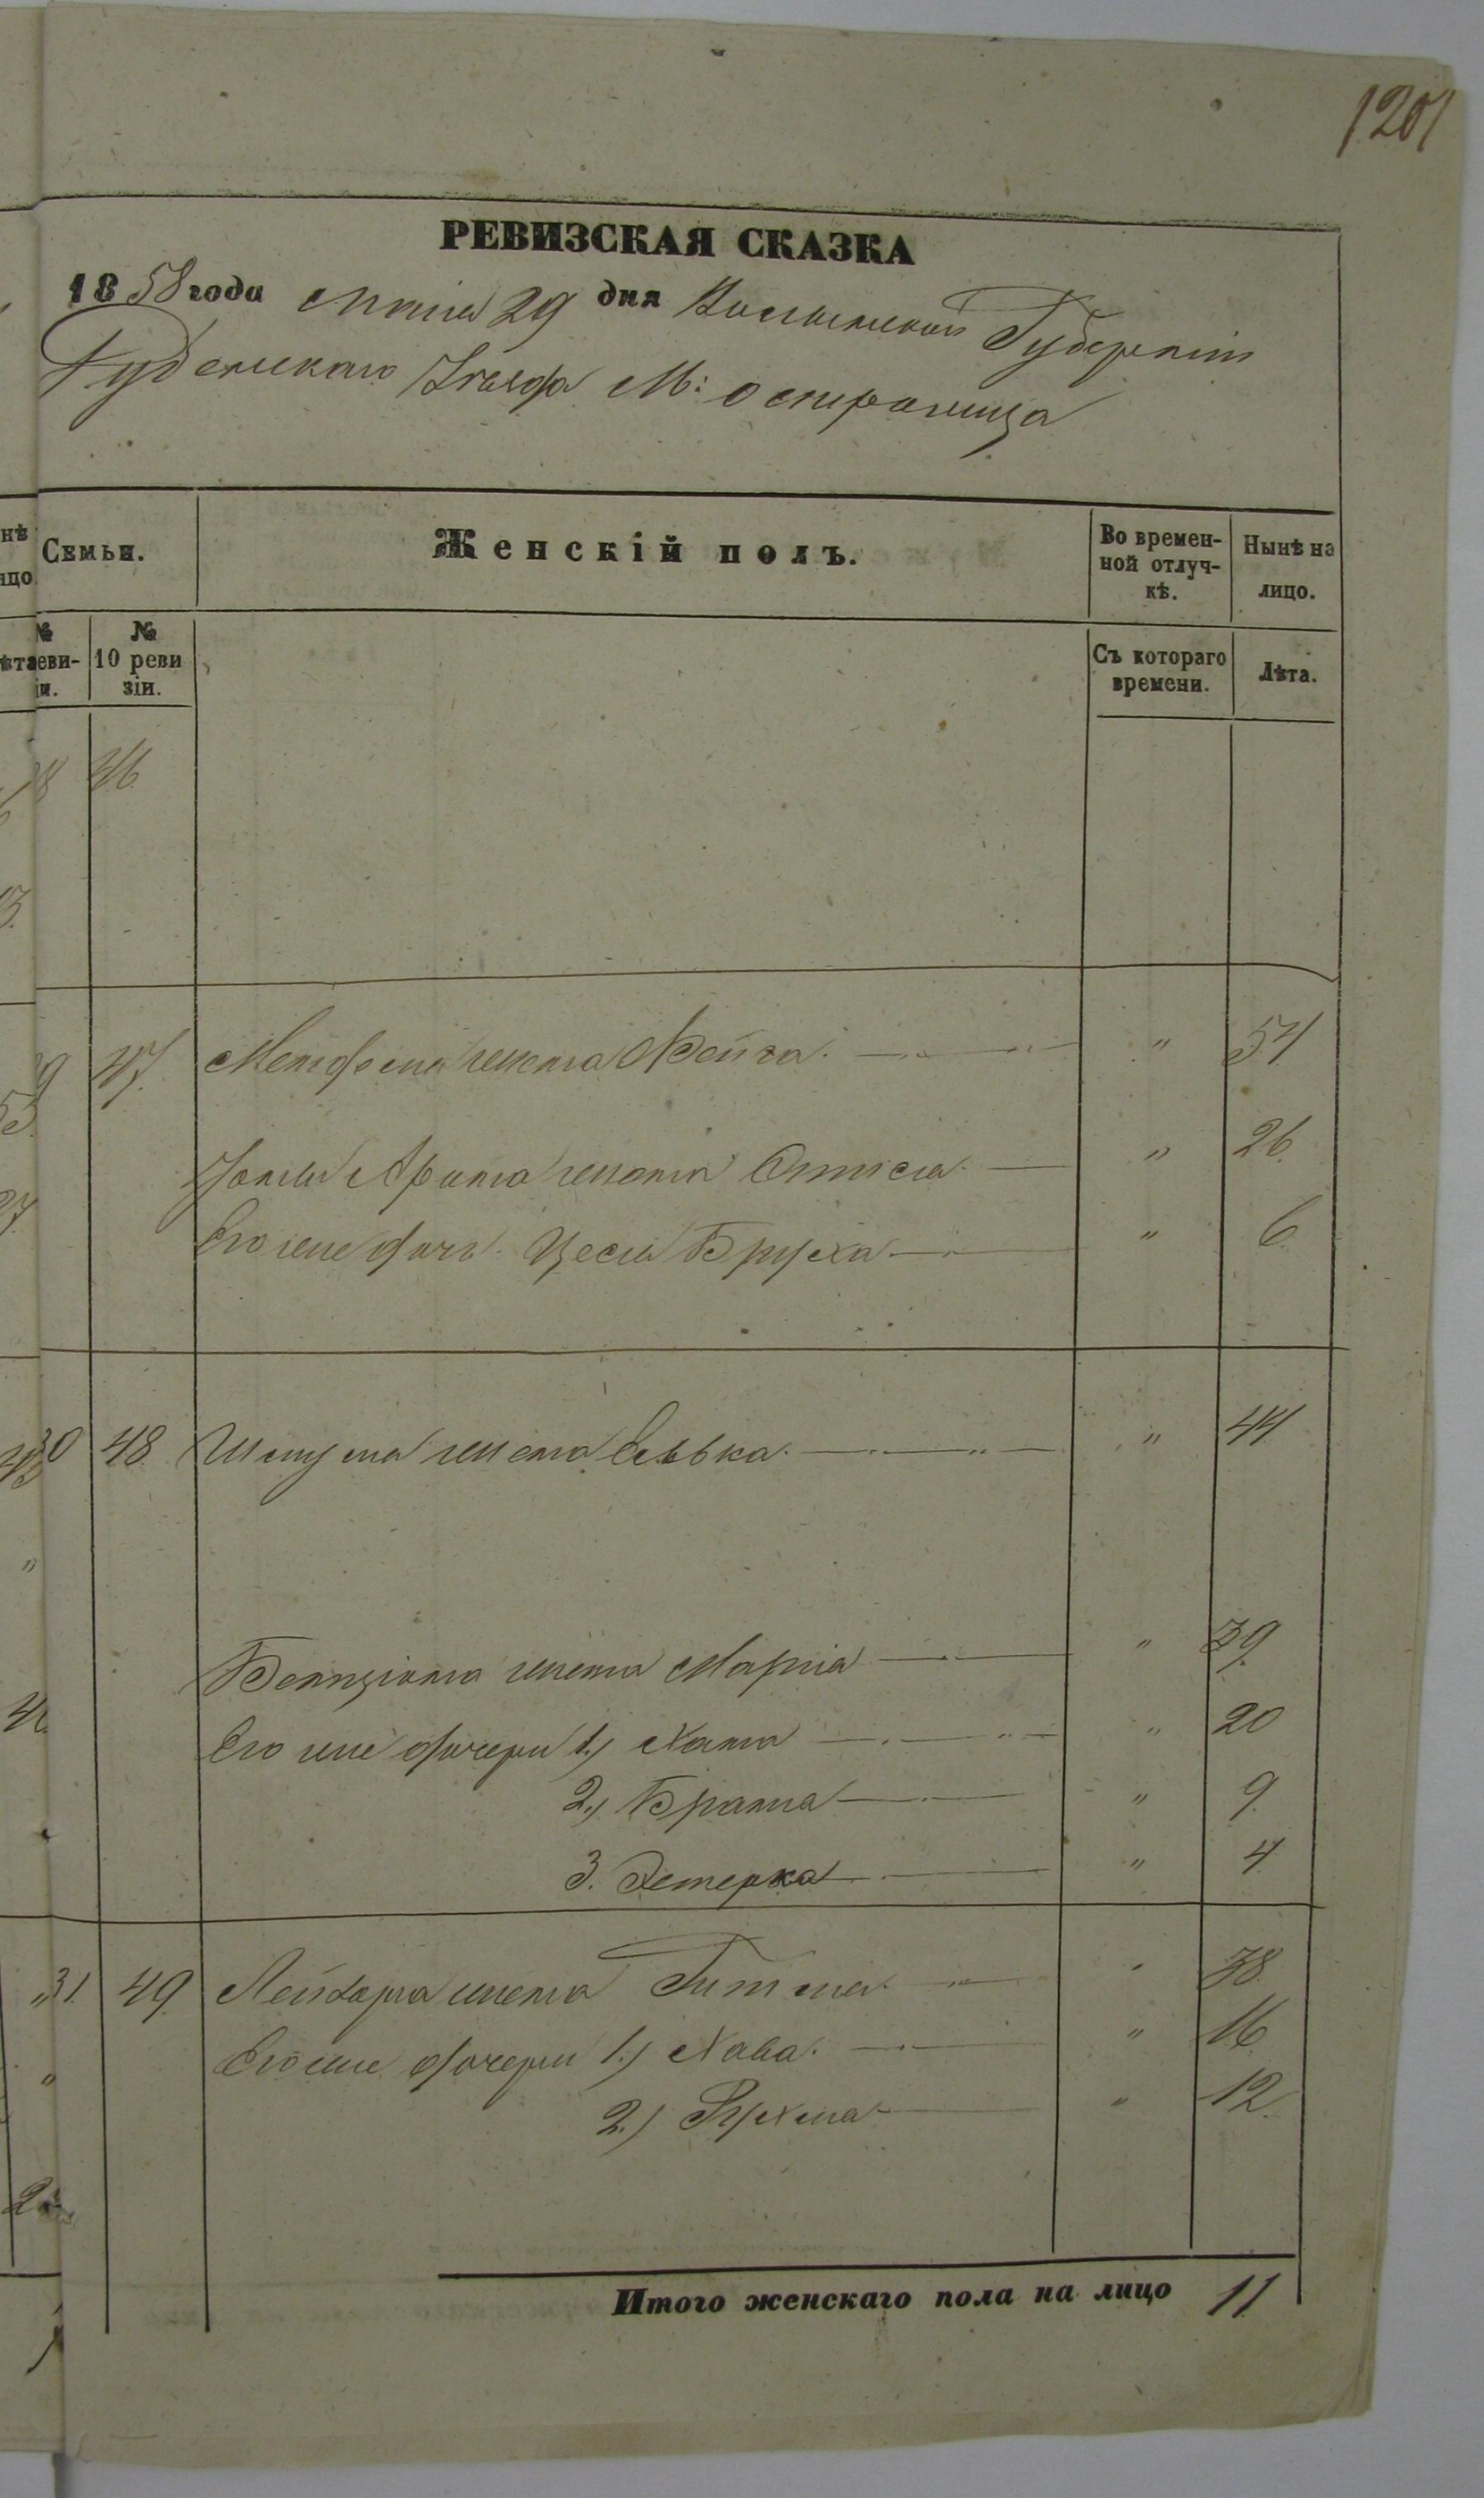 1201
РЕВИЗСКАЯ СКАЗКА
1858 года Маія 29 дня Волынской Губерніи
Дубенскаго Уѣзда М: Острожца
Семьи.
Женскій полъ.
Во времен-
ной отлуч-
кѣ.
Нынѣ на
лицо.
№
10 реви
зіи.
Съ котораго
времени.
Лѣта.
46
47. жена Фейга. " 54
жена " 26.
Его же дочь Цесля Бруха " 6.
48 Шмуля жена Соська. " 44
Бенціона жена Марія " 39.
Его же дочери 1.) Хана " 20
2.) Брана " 9.
3. Эстерка " 4
31. 49 Лейзера жена Гитля " 38
Его же дочери 1.) Хава. " 16
2.) Рухля " 12.
Итого женскаго пола на лицо 11